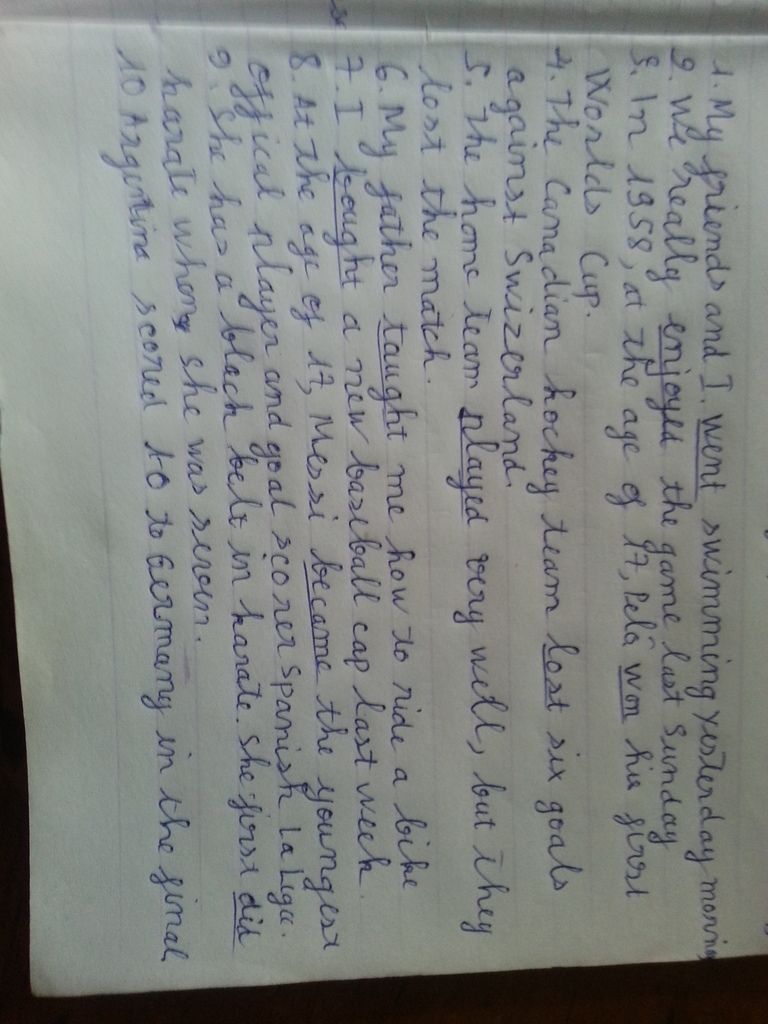 1. My friends and I. went swimming yesterday morning
2. We really enjoyed the game last Sunday
3. In 1958, at the age of 17, Pelé won his first
Worlds Cup.
4. The Canadian hockey team lost six goals
against Swizerland.
5. The home team played very well, but they
lost the match.
6. My father taught me how to ride a bike
7. I bought a new baseball cap last week.
8. At the age of 17, Messi became the youngest
offical player and goal scorer Spanish La Liga.
9. She has a black belt in karate. She first did
karate when she was seven.
10 Argentina scored 10 to Germany in the final